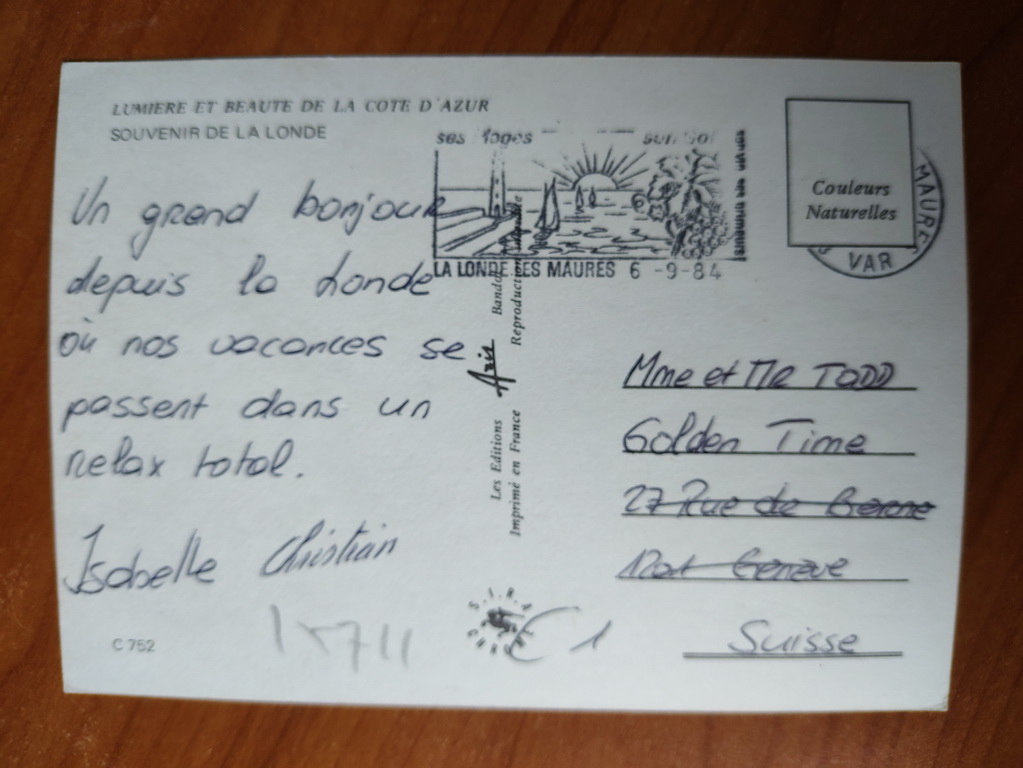 LUMIERE ET BEAUTE DE LA COTE D'AZUR
SOUVENIR DE LA LONDE
Un grand bonjour
depuis la Londe
où nos vacances se
passent dans un
relax total.
Isabelle Christian
C 752
ses plages
son sol
LA LONDE LES MAURES 6 -9-84
Couleurs
Naturelles
MAURES
VAR
Les Editions Aris Bandol
Imprimé en France Reproduction
S.I.R.A.
€ 1
Mme et MR TODD
Golden Time
27 Rue de Berne
1201 Genève
Suisse